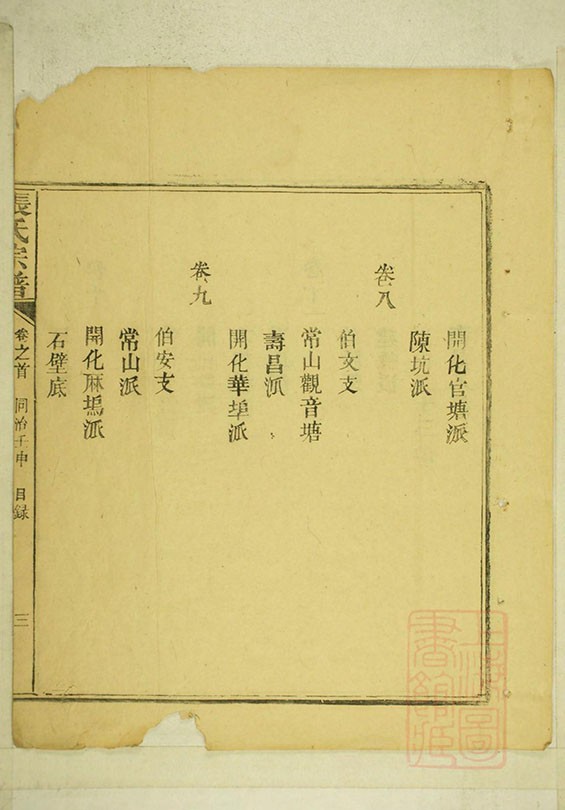 開化官塘派
陳坑派
卷八
伯文支
常山觀音塘
壽昌派
開化華埠派
卷九
伯安支
常山派
開化麻塢派
石壁底
張氏宗譜
卷之首 同治壬申 目録
三
上海圖
書館藏